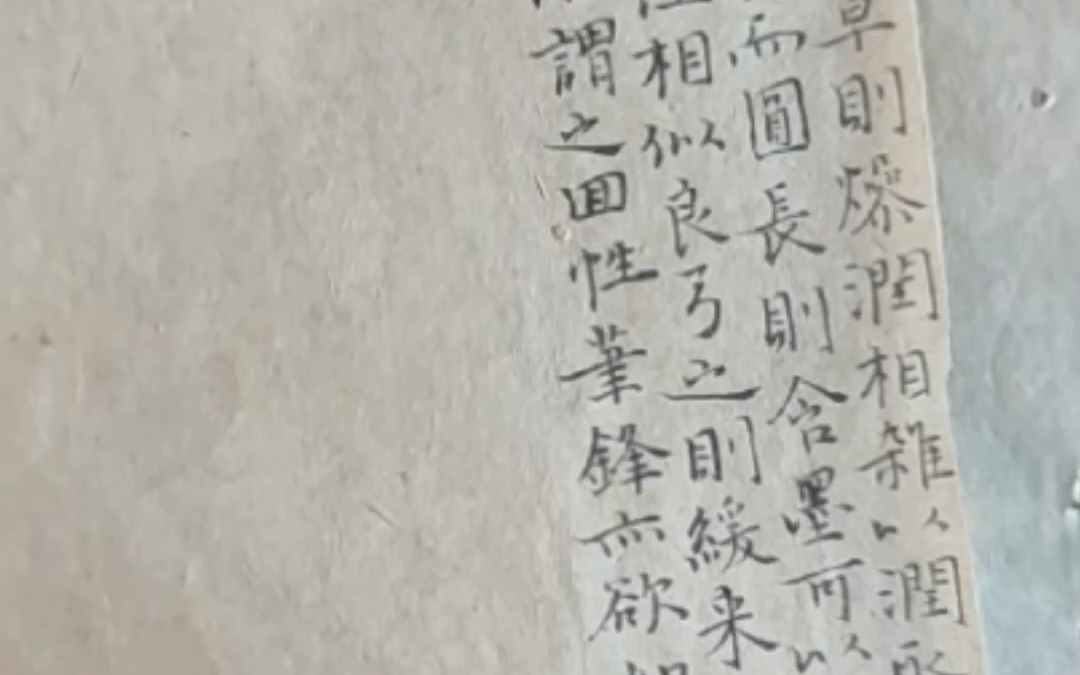 草則燥潤相雜以潤取
而圓長則含墨可以
相似良弓之則緩来
謂之回性筆鋒亦欲